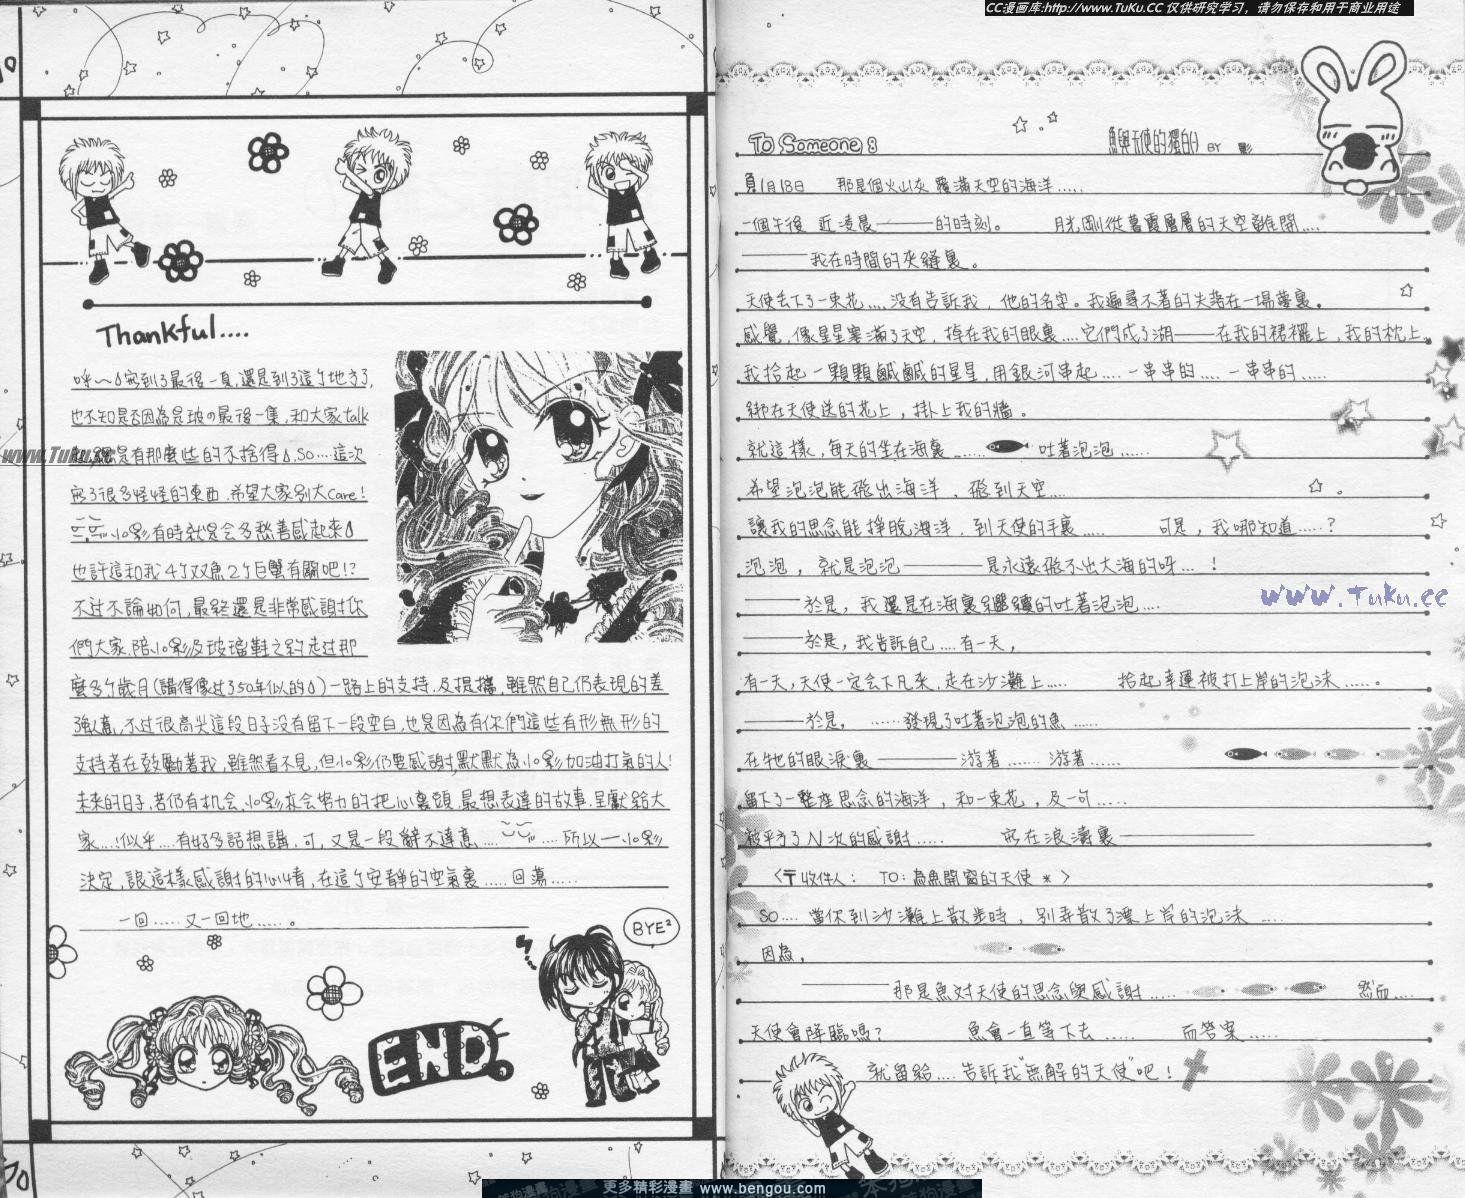 CC漫画库:http://www.TuKu.CC 仅供研究学习，请勿保存和用于商业用途
Thankful....
呼~~寫到了最後一頁,還是到了這个地方了,
也不知是否因為是玻の最後一集,和大家talk
是有那麼些的不捨得,SO....這次
寫了很多怪怪的東西,希望大家別太care!
小影有時就是會多愁善感起來
也許這和我4个双魚2个巨蟹有關吧!?
不过不論如何,最終還是非常感謝你
們大家,陪小影及玻璃鞋之約走过那
麼多个歲月(講得像过了50年似的)一路上的支持,及提攜,雖然自己仍表現的差
強人意,不过很高兴這段日子没有留下一段空白,也是因為有你們這些有形無形的
支持者在鼓勵著我,雖然看不見,但小影仍要感謝默默為小影加油打氣的人!
未來的日子,若仍有机会,小影会努力的把心裏頭,最想表達的故事,呈獻給大
家...!似乎....有好多話想講,可,又是一段辭不達意...... ....所以—小影
決定,讓這樣感謝的心情,在這个安靜的空氣裏......回蕩.....
一回......又一回地......。
BYE²
END.
www.Tuku.cc
To Someone 8
魚與天使的獨白() BY 影
1月18日 那是個火山灰覆滿天空的海洋.....
一個午後 近凌晨———的時刻。 月光,剛從暮霞層層的天空離開....
———我在時間的夾縫裏。
天使丟下了一束花....没有告訴我,他的名字。我遍尋不著的失落在一場夢裏。
感覺,像星星塞滿了天空,掉在我的眼裏....它們成了湖——在我的裙襬上,我的枕上
我拾起一顆顆鹹鹹的星星,用銀河串起.....一串串的..... 一串串的......
綁在天使送的花上,掛上我的牆。
就這樣,每天的坐在海裏...... 吐著泡泡......
希望泡泡能飛出海洋,飛到天空....
讓我的思念能掙脫海洋,到天使的手裏..... 可是,我哪知道.....?
泡泡,就是泡泡———是永遠飛不出大海的呀...!
——於是,我還是在海裏繼續的吐著泡泡....
——於是,我告訴自己....有一天,
www.Tuku.cc
有一天,天使一定会下凡來,走在沙灘上..... 拾起幸運被打上岸的泡沫.....。
——於是, ......發現了吐著泡泡的魚.....
在牠的眼淚裏———游著.......游著......
留下了一整座思念的海洋,和一束花,及一句.....
被平方了N次的感謝..... 寫在浪濤裏————
〈〒收件人: TO:為魚開窗的天使*〉
SO....當你到沙灘上散步時,別弄散了漂上岸的泡沫 .....
因為,
————那是魚对天使的思念與感謝..... 然而....
天使會降臨嗎? 魚會一直等下去...... 而答案.....
就留給....告訴我"無解的天使"吧!
更多精彩漫畫 www.bengou.com